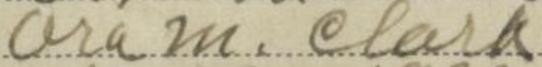 Ora M. Clark